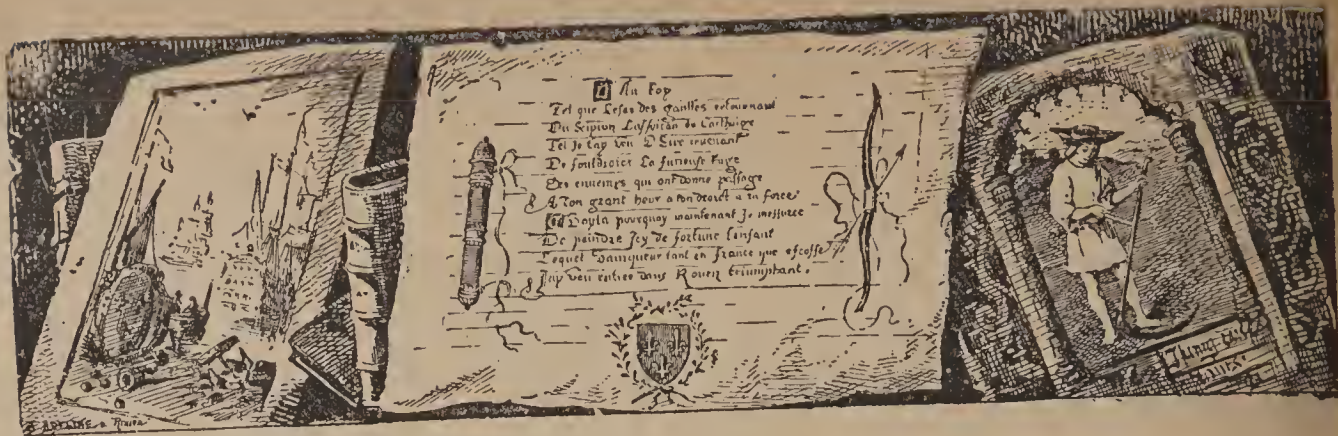 Au Roy
Tel que Cesar des gaulles retournant
Ou Scipion Laffrican de Carthaige
Tel Je tay veu O Sire revenant
De fouldroier La furieuse rage
Des ennemys qui ont donne passage
A ton grant heur a ton droict a ta force
Voyla pourquoy maintenant Je
De paindre Icy de fortune lenfant
Lequel vainqueur tant en france que escosse
Jay veu entrer dans Rouen triumphant.
J. ADELINE a Rouen